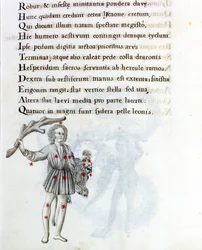 Robur & infeste minitantia pondera clavę
Hunc quidam credunt cretum,
Qui illum natam spectare megisto,
Hic humero aestivum contingit denique
Ipse pedum digitis arctos prioribus
Terminat; atque alio calcat pede colla draconis
Hesperidum sacros servantis ab hercule ramos
Dextra sub aestiferum manus est extenta; sinistra
Erigonen tangit; stat vertice stella sub uno,
Altera stat laevi media pro parte lacerti
Quatuor in magni sunt sydera pelle leonis.